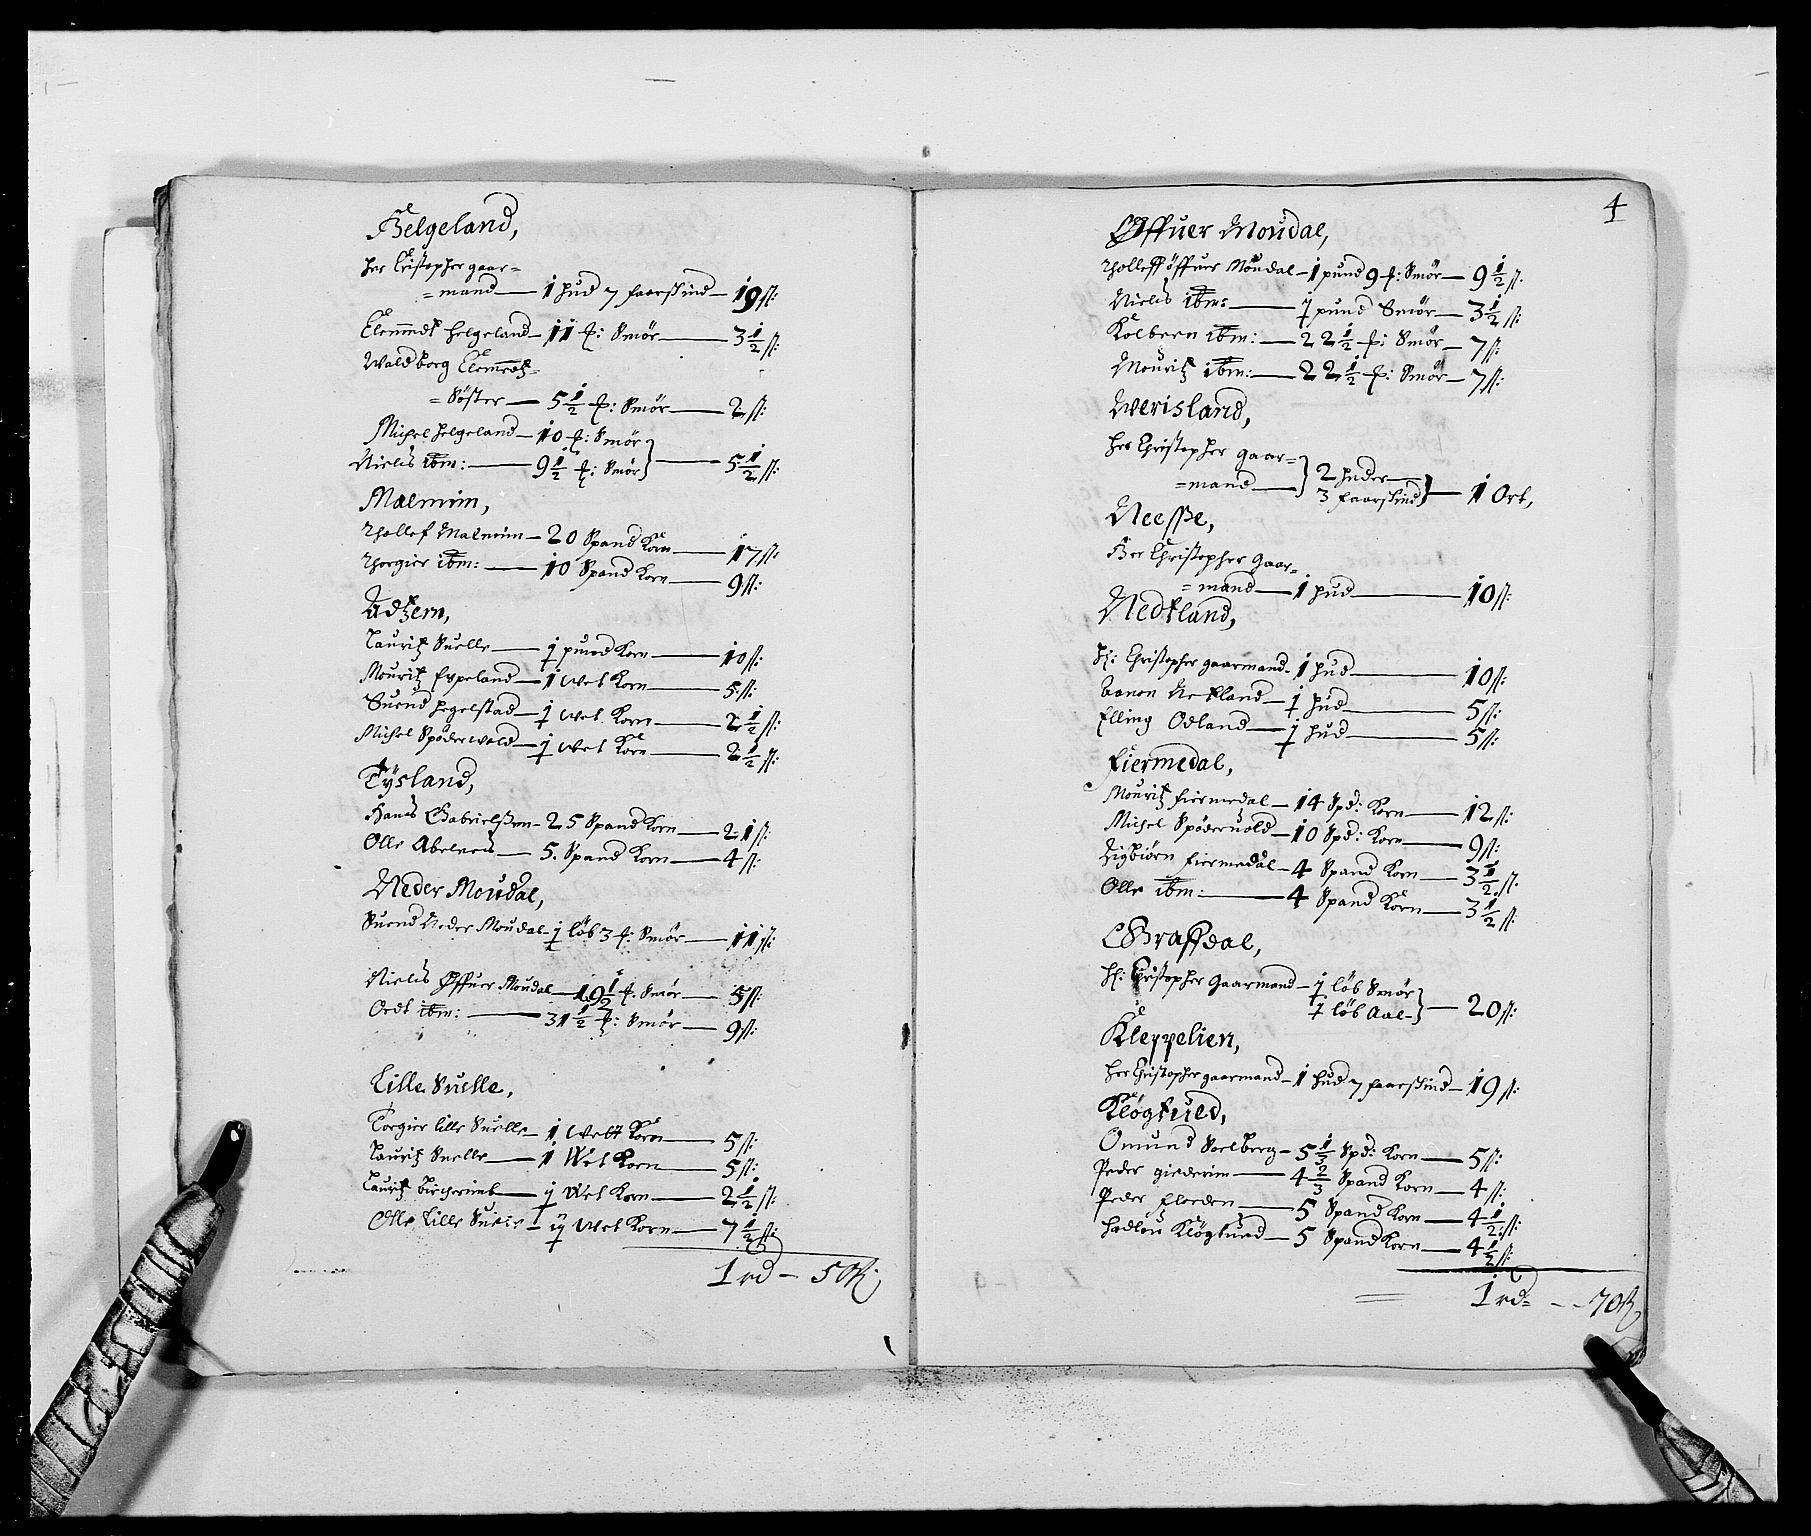 Helgeland,
Her Christopher gaar=
=mand — 1 hud 7 faarskind — 19 ß:
Clemmet Helgeland — 11 t: Smör — 3 1/2 ß:
Waldborg Clemmetz=
=Söster — 5 1/2 t: Smör — 2 ß:
Michel Helgeland — 10 t: Smör
Niels ibm: — 9 1/2 t: Smör } — 5 1/2 ß:
Malmim,
Thollef Malmim — 20 Spand Korn — 17 ß:
Thorgier ibm: — 10 Spand Korn — 9 ß:
Udtzem,
Lauritz Suelle — 1/2 pund Korn — 10 ß:
Mouritz Erpeland — 1 Wet Korn — 5 ß:
Suend Hegelstad — 1/2 Wet Korn — 2 1/2 ß:
Michel Spöderwold — 1/2 Wet Korn — 2 1/2 ß:
Tysland,
Hans Gabrielsen — 25 Spand Korn — 21 ß:
Olle Abelnes — 5 Spand Korn — 4 ß:
Neder Moudal,
Suend Neder Moudal — 1/2 löb 3 t: Smör — 11 ß:
Niels Øffuer Moudal — 19 1/2 t: Smör — 5 ß:
Ordt ibm: — 31 1/2 t: Smör — 9 ß:
Lille Suelle,
Torgier lille Suelle — 1 Wett Korn — 5 ß:
Lauritz Suelle — 1 Wet Korn — 5 ß:
Lauritz — 1/2 Wet Korn — 2 1/2 ß:
Olle Lille Suelle — 1 1/2 Wet Korn — 7 1/2 ß:
1 rd — 50 ß
4
Øffuer Moudal,
Tholleff öffuer Moudal — 1 pund 9 t: Smör — 9 1/2 ß:
Niels ibm: — 1/2 pund Smör — 3 1/2 ß:
Kolbern ibm: — 22 1/2 t: Smör — 7 ß:
Mouritz ibm: — 22 1/2 t: Smör — 7 ß:
Werisland,
Her Christopher Gaar=
=mand — } 2 huder — 3 faarskind } — 1 Ort,
Neesse,
Her Christopher Gaar=
=mand — 1 hud — 10 ß:
Nedtland,
Hr: Christopher gaarmand — 1 hud — 10 ß:
Aanon Netland — 1/2 hud — 5 ß:
Elling Odland — 1/2 hud — 5 ß:
Fiermedal,
Mouritz Fiermedal — 14 Spd: Korn — 12 ß:
Michel Spöderuold — 10 Spd: Korn — 9 ß:
Sigbiörn Fiermedal — 4 Spand Korn — 3 1/2 ß:
Olle ibm: — 4 Spand Korn — 3 1/2 ß:
Graffdal,
Hr: Christopher Gaarmand — 1/2 löb Smör
1/2 löb Aal } — 20 ß:
Kleppelien,
Her Christopher gaarmand — 1 hud 7 faarskind — 19 ß:
Klögtued,
Omund Soelberg — 5 1/3 Spd: Korn — 5 ß:
Peder giederim — 4 2/3 Spand Korn — 4 ß:
Peder Floeden — 5 Spand Korn — 4 1/2 ß:
Hadlou Klögtued — 5 Spand Korn — 4 1/2 ß:
1 rd: — 70 ß